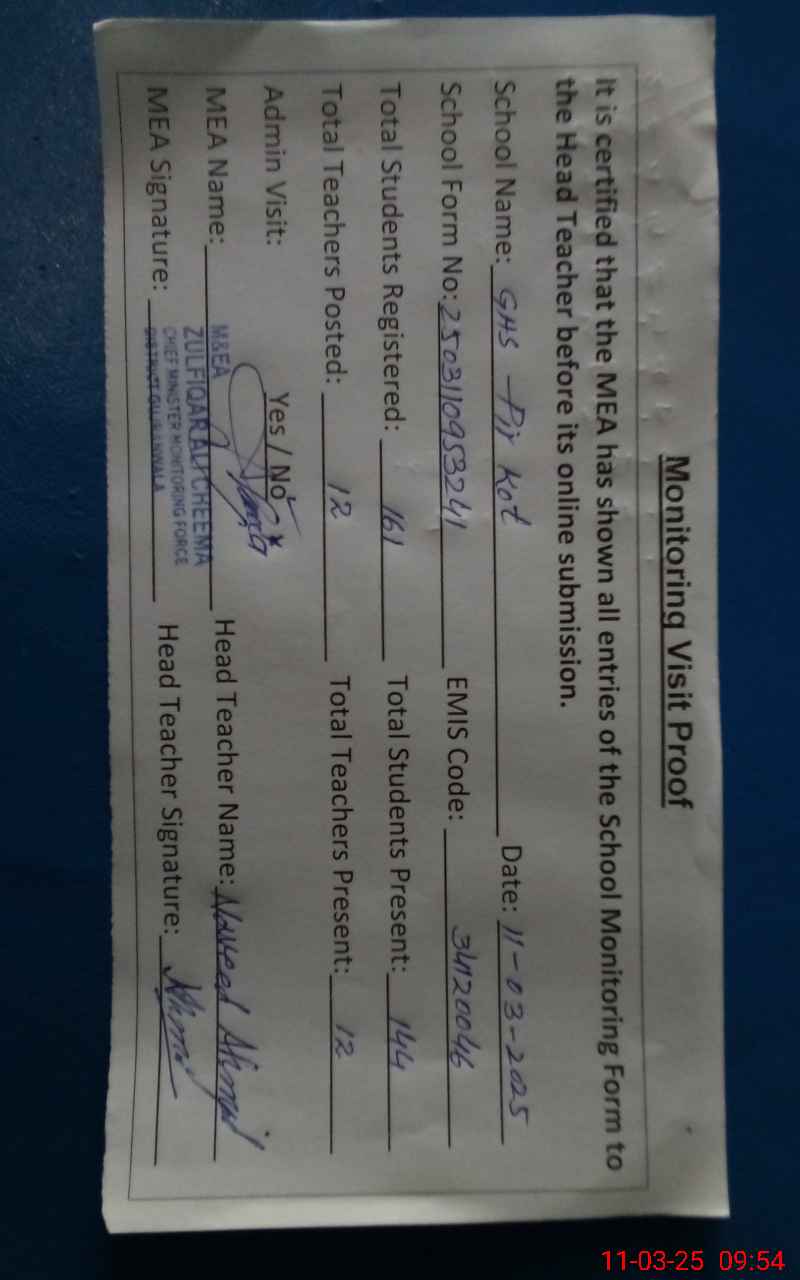 Monitoring Visit Proof
It is certified that the MEA has shown all entries of the School Monitoring Form to
the Head Teacher before its online submission.
School Name: GHS Pir Kot Date: 11-03-2025
School Form No: 2503110953241 EMIS Code: 34120046
Total Students Registered: 161 Total Students Present: 144
Total Teachers Posted: 12 Total Teachers Present: 12
Admin Visit: Yes / No
MEA Name: Head Teacher Name: Naveed Ahmad
MEA Signature: Head Teacher Signature:
M&EA
ZULFIQAR ALI CHEEMA
CHIEF MINISTER MONITORING FORCE
DISTRICT GUJRANWALA
11-03-25 09:54